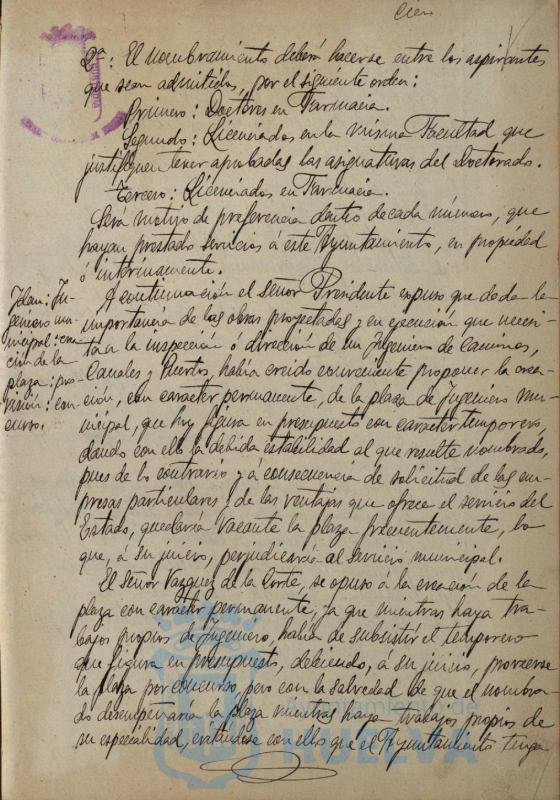 Cien
2ª: El nombramiento deberá hacerse entre los aspirantes
que sean admitidos, por el siguiente orden:
Primero: Doctores en Farmacia.
Segundo: Licenciados en la misma Facultad que
justifiquen tener aprobadas las asignaturas del Doctorado.
Tercero: Licenciados en Farmacia.
Será motivo de preferencia dentro de cada número, que
hayan prestado servicios á este Ayuntamiento, en propiedad
ó interinamente.
Idem: In-
geniero mu-
nicipal: crea-
ción de la
plaza: pro-
visión: con-
curso.
A continuación el señor Presidente expuso que dada la
importancia de las obras proyectadas y en ejecución que necesi-
tan la inspección ó dirección de un Ingeniero de Caminos,
Canales y Puertos, había creido conveniente proponer la crea-
ción, con caracter permanente, de la plaza de Ingeniero mu-
nicipal, que hoy figura en presupuesto con caracter temporero,
dando con ello la debida estabilidad al que resulte nombrado,
pues de lo contrario y á consecuencia de solicitud de las em-
presas particulares y de las ventajas que ofrece el servicio del
Estado, quedaría vacante la plaza frecuentemente, lo
que, á su juicio, perjudicaría al servicio municipal.
El señor Vazquez de la Corte, se opuso á la creación de la
plaza con caracter permanente, ya que mientras haya tra-
bajos propios de Ingeniero, había de subsistir el temporero
que figura en presupuesto, debiendo, á su juicio, proveerse
la plaza por concurso, pero con la salvedad de que el nombra-
do desempeñaría la plaza mientras haya trabajos propios de
su especialidad, evitándose con ello que el Ayuntamiento tenga
Ayuntamiento de
HUELVA